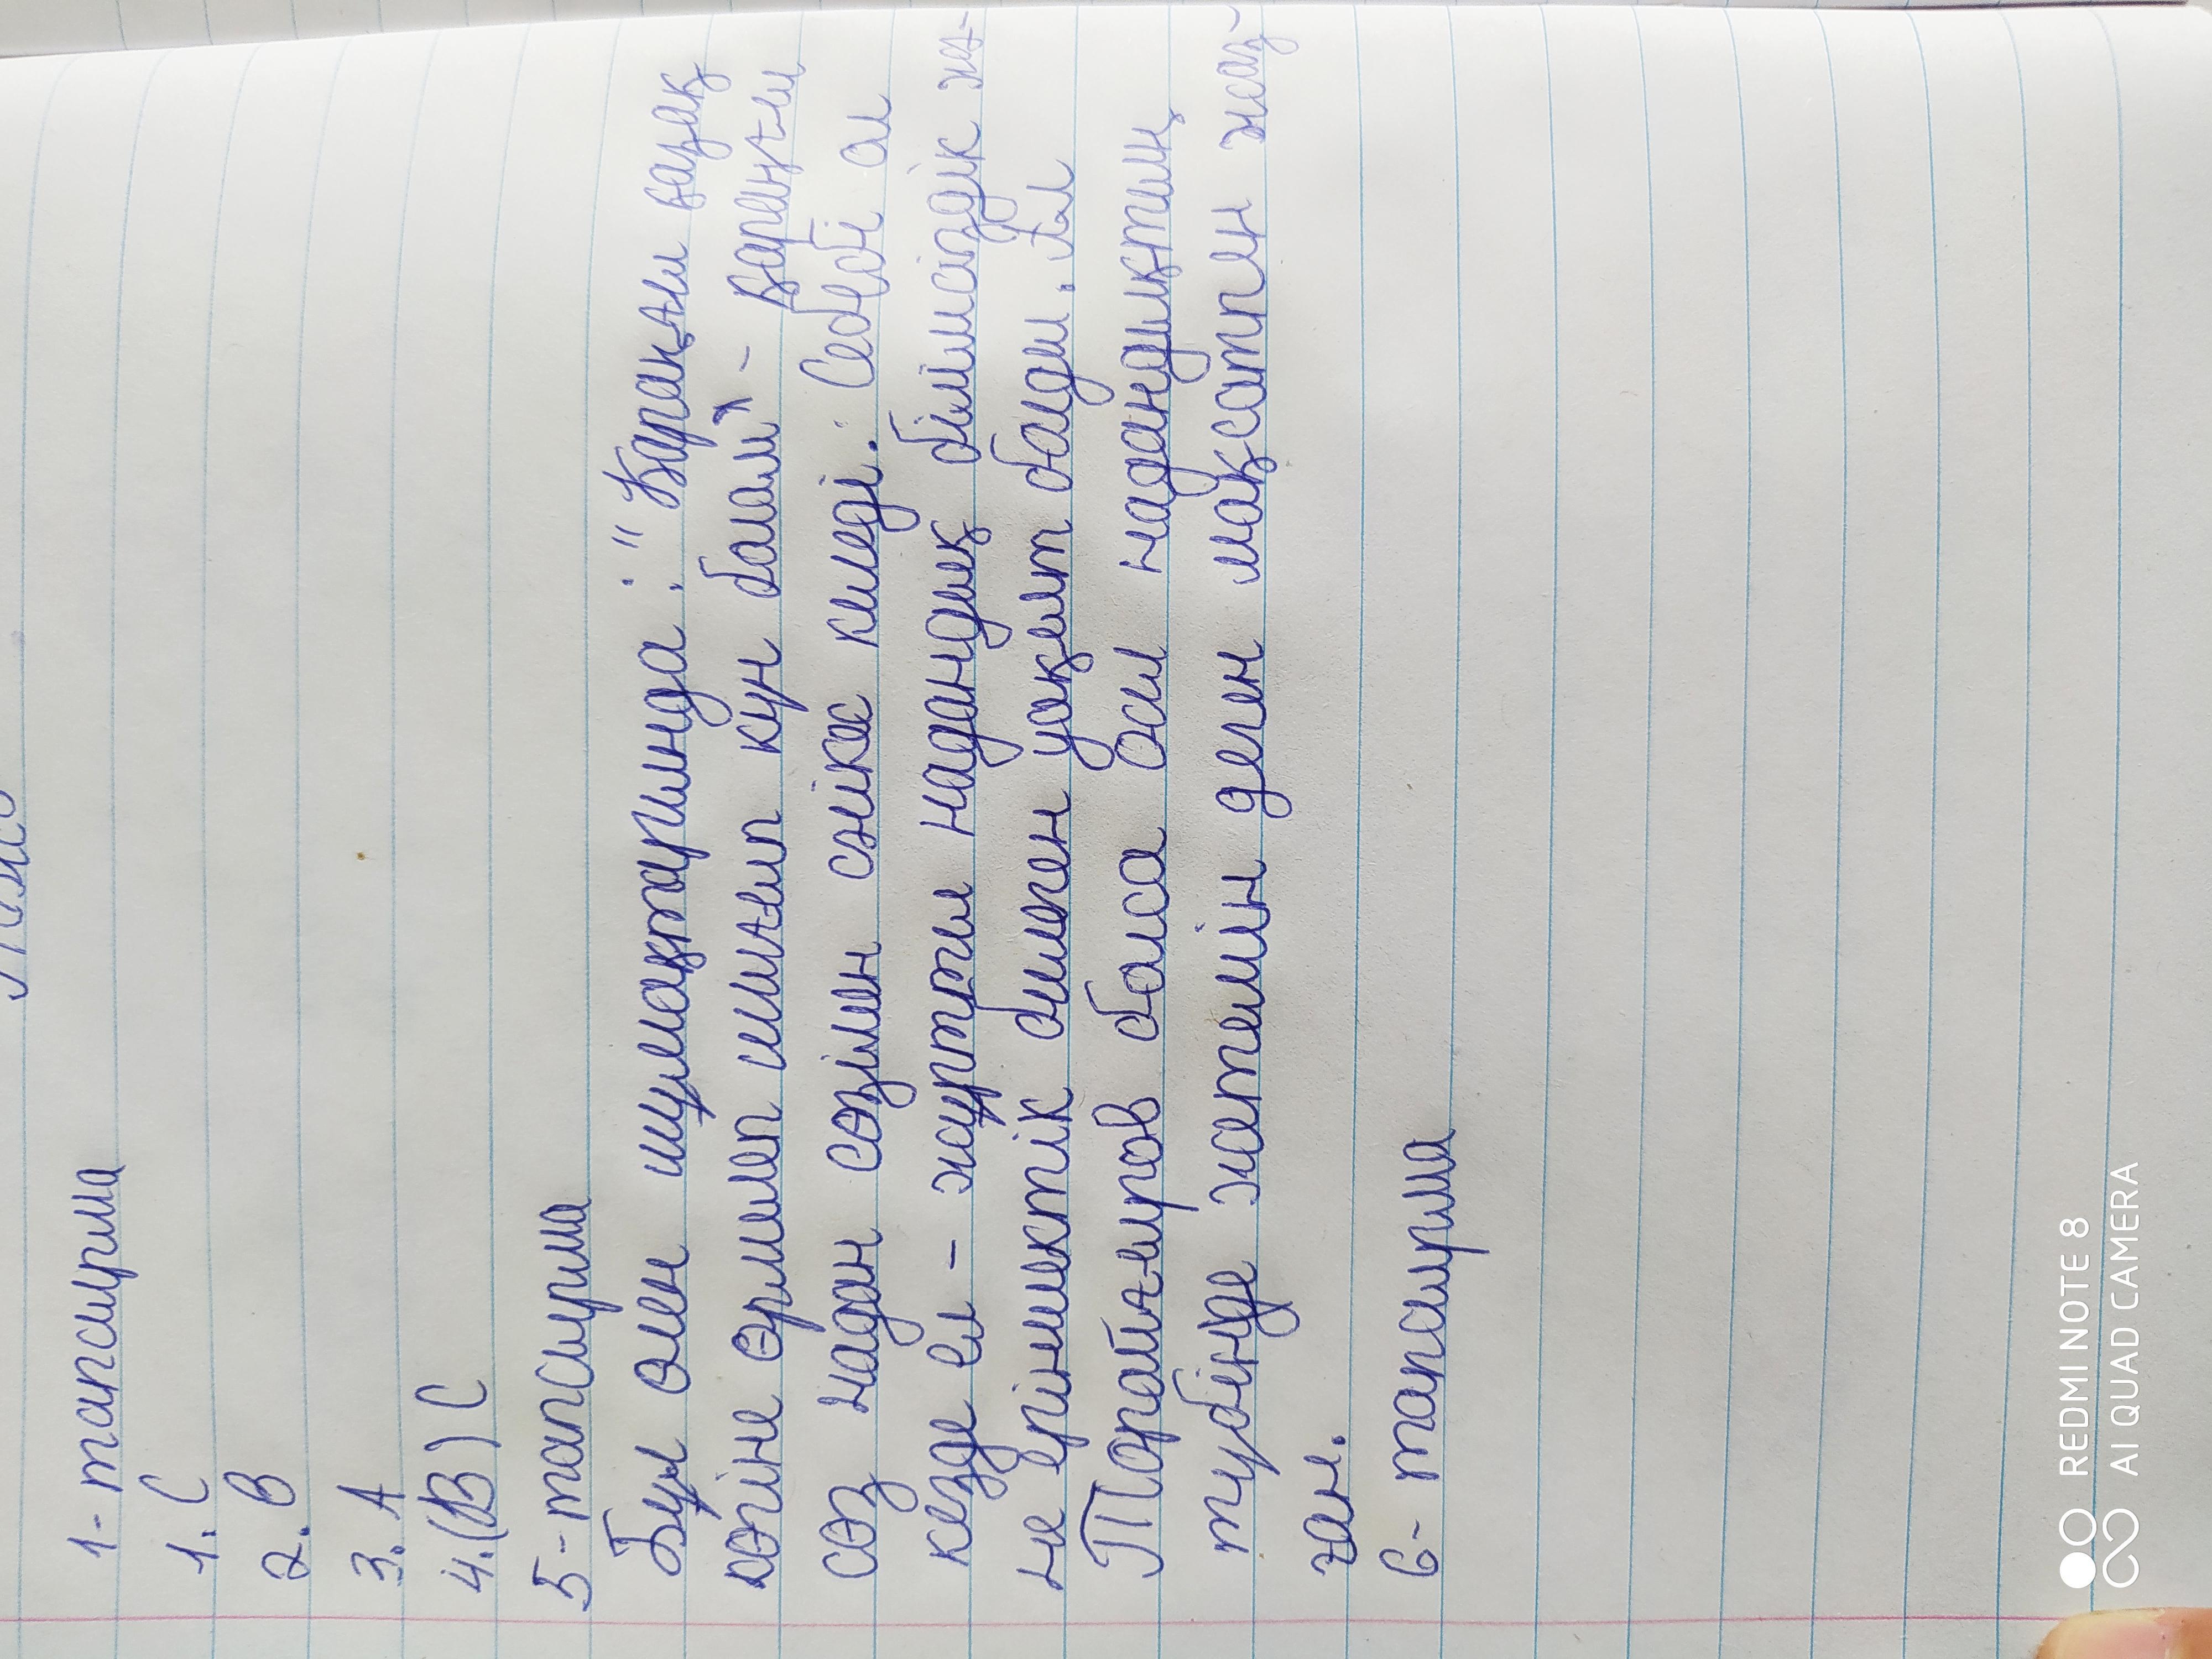 1-тапсырма
1. С
2. В
3. А
4. (В) С
5-тапсырма
Бұл өлең шумақтарында: "Қараңғы қазақ
көгіне өрмелеп шығып күн болам" - дарынғы
сөз надан сөзімен сәйкес келеді. Себебі ол
кезде ел - жұртты надандық білімсіздік жә-
не еріншектік билеген уақыт болды. Ал
Торайғыров болса осы надандықтың
түбінде жетемін деген мақсатпен жаз-
ған.
6-тапсырма
REDMI NOTE 8
AI QUAD CAMERA